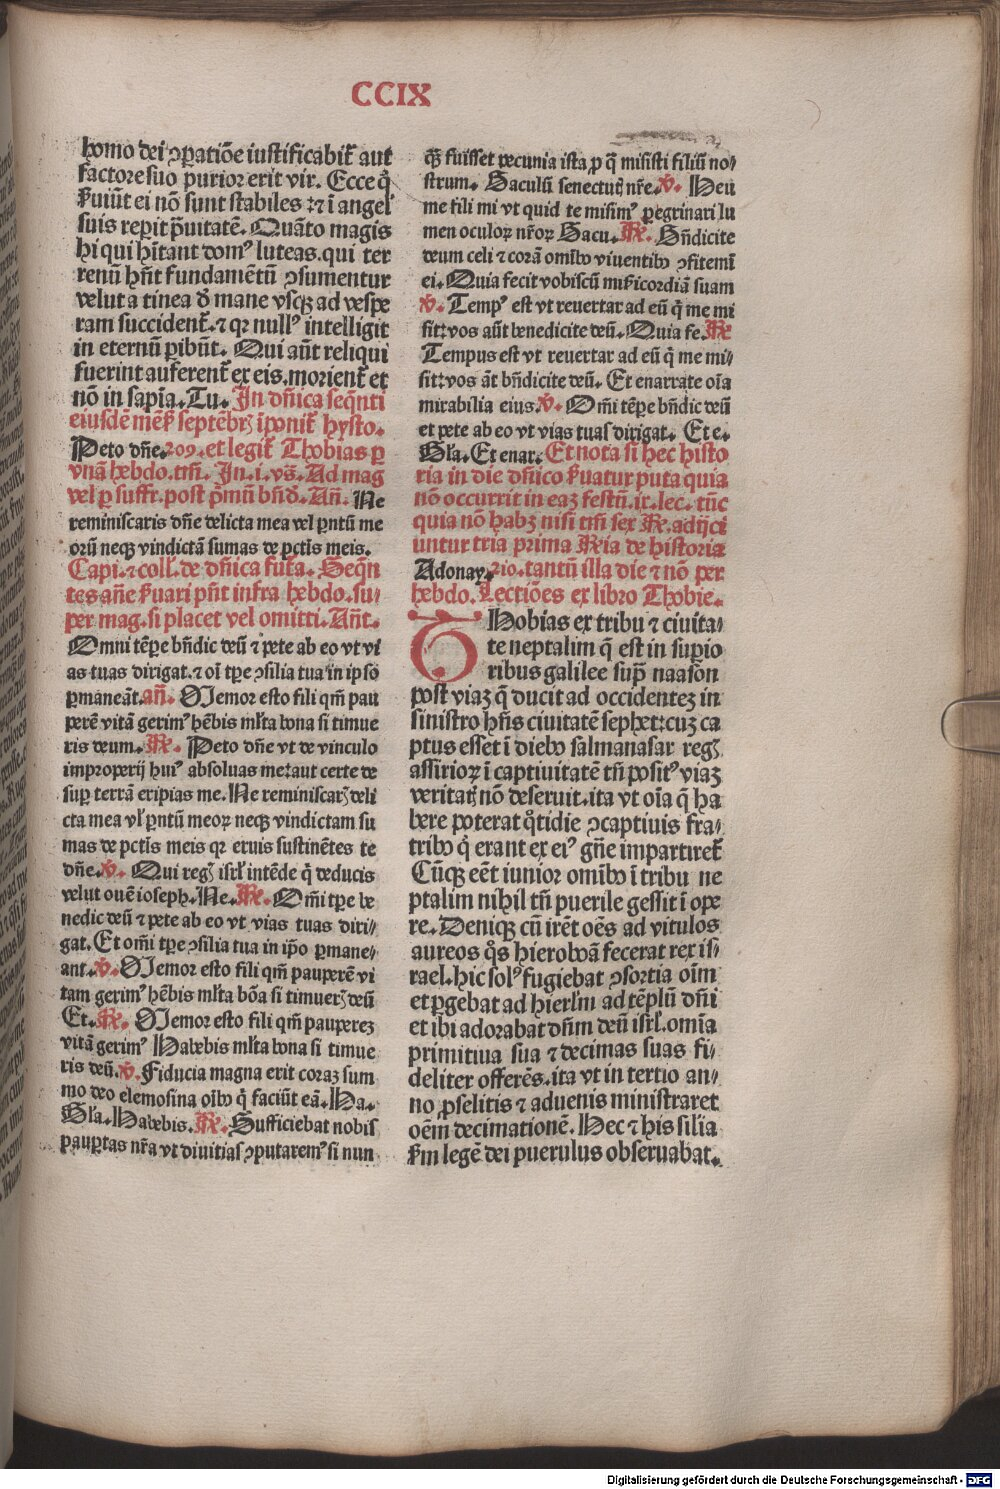 CCIX
homo dei ꝯꝑatiōe iustificabit᷑ aut
factore suo purior erit vir. Ecce q̇
ẜuiūt ei nō sunt stabiles ⁊ ī angel
suis reꝑit p̄uitatē. Quāto magis
hi qui hītant domꝰ luteas. qui ter
renū hn̄t fundamētū ꝯsumentur
velut a tinea ď mane vsqꝫ ad vespe
ram succident᷑. ⁊ qꝛ nullꝰ intelligit
in eternū ꝑibūt. Qui aūt reliqui
fuerint auferent᷑ ex eis. morient᷑ et
nō in sapīa. Tu. In dn̄ica seqn̄ti
eiusdē mēẜ septēbrꝭ īponit᷑ hysto.
Peto dn̄e. 209. et legit᷑ Thobias ꝑ
vnā hebdo. tm̄. In. i. vs̄. Ad mag
vel ꝑ suffr. post p̄mū bn̄d̄. An̄. Ne
reminiscaris dn̄e delicta mea vel pn̄tū me
orū neqꝫ vindictā sumas de pctīs meis.
Capi. ⁊ coll. de dn̄ica fut᷑a. Seqn̄
tes an̄e ẜuari pn̄t infra hebdo. su⸗
per mag. si placet vel omitti. Ān̄t.
Omni tēꝑe bn̄dic deū ⁊ pete ab eo vt vi
as tuas dirigat. ⁊ oī tꝑe ꝯsilia tua in ipso
ꝑmaneāt. an̄. Memor esto fili qm̄ pau
perē vitā gerimꝰ hēbis ml̄ta bona si timue
ris deum. R̄. Peto dn̄e vt de vinculo
improperij huiꝰ absoluas me: aut certe de
suꝑ terrā eripias me. Ne reminiscarꝭ deli
cta mea vl̓ pn̄tū meoꝝ neqꝫ vindictam su
mas de pctīs meis qꝛ eruis sustinētes te
dn̄e. v̄. Qui regꝭ isrl̓ intēde q̇ deducis
velut ouē ioseph. Ne. R̄. Om̄i tꝑe be
nedic deū ⁊ pete ab eo vt vias tuas diri⸗
gat. Et om̄i tꝑe ꝯsilia tua in ip̄o ꝑmane⸗
ant. v̄. Memor esto fili qm̄ pauperē vi
tam gerimꝰ hēbis ml̄ta bōa si timuerꝭ deū
Et. R̄. Memor esto fili qm̄ pauperez
vitā gerimꝰ Habebis ml̄ta bona si timue
ris deū. v̄. Fiducia magna erit coraꝫ sum
mo deo elemosina oībꝰ q̄ faciūt eā. Ha.
Gl̓a. Habebis. R̄. Sufficiebat nobis
pauꝑtas nr̄a vt diuitias ꝯputaremꝰ si nun
qꝫ fuisset pecunia ista ꝓ q̄ misisti filiū no⸗
strum. Baculū senectutꝭ nr̄e. v̄. Heu
me fili mi vt quid te misimꝰ ꝑegrinari lu
men oculoꝝ nr̄oꝝ Bacu. R̄. Bn̄dicite
deum celi ⁊ corā omībꝰ viuentibꝰ ꝯfitemī
ei. Quia fecit vobiscū mīẜicordiā suam
v̄. Tempꝰ est vt reuertar ad eū q̄ me mi
sit: vos aūt benedicite deū. Quia fe. R̄
Tempus est vt reuertar ad eū q̄ me mi⸗
sit: vos āt bn̄dicite deū. Et enarrate oīa
mirabilia eius. v̄. Om̄i tēꝑe bn̄dic deū
et pete ab eo vt vias tuas dirigat. Et e.
Gl̓a. Et enar. Et nota si hec histo
ria in die dn̄ico ẜuatur puta quia
nō occurrit in eaꝫ festū. ix. lec. tūc
quia nō habꝫ nisi tm̄ sex R̄. adijci
untur tria prima R̄ia de historia
Adonay. 210. tantū illa die ⁊ nō per
hebdo. Lectiōes ex libro Thobie.
Thobias ex tribu ⁊ ciuita⸗
te neptalim q̄ est in suꝑio
ribus galilee sup̄ naason
post viaꝫ q̄ ducit ad occidentez in
sinistro hn̄s ciuitatē sephet: cuꝫ ca
ptus esset ī diebꝰ salmanasar regꝭ
assirioꝝ ī captiuitatē tn̄ positꝰ viaꝫ
veritatꝭ nō deseruit. ita vt oīa q̄ ha
bere poterat q̊tidie ꝯcaptiuis fra⸗
tribꝰ q̇ erant ex eiꝰ gn̄e impartiret᷑
Cūqꝫ eēt iunior omībꝰ ī tribu ne
ptalim nihil tn̄ puerile gessit ī ope
re. Deniqꝫ cū irēt oēs ad vitulos
aureos q̊s hieroboā fecerat rex is⸗
rael. hic solꝰ fugiebat ꝯsortia oīm
et ꝑgebat ad hierl̄m ad tēplū dn̄i
et ibi adorabat dn̄m deū isrl̓. omīa
primitiua sua ⁊ decimas suas fi⸗
deliter offerēs. ita vt in tertio an⸗
no ꝓselitis ⁊ aduenis ministraret
oēm decimationē. Hec ⁊ his silīa
ẜm legē dei puerulus obseruabat.
Digitalisierung gefördert durch die Deutsche Forschungsgemeinschaft - DFG